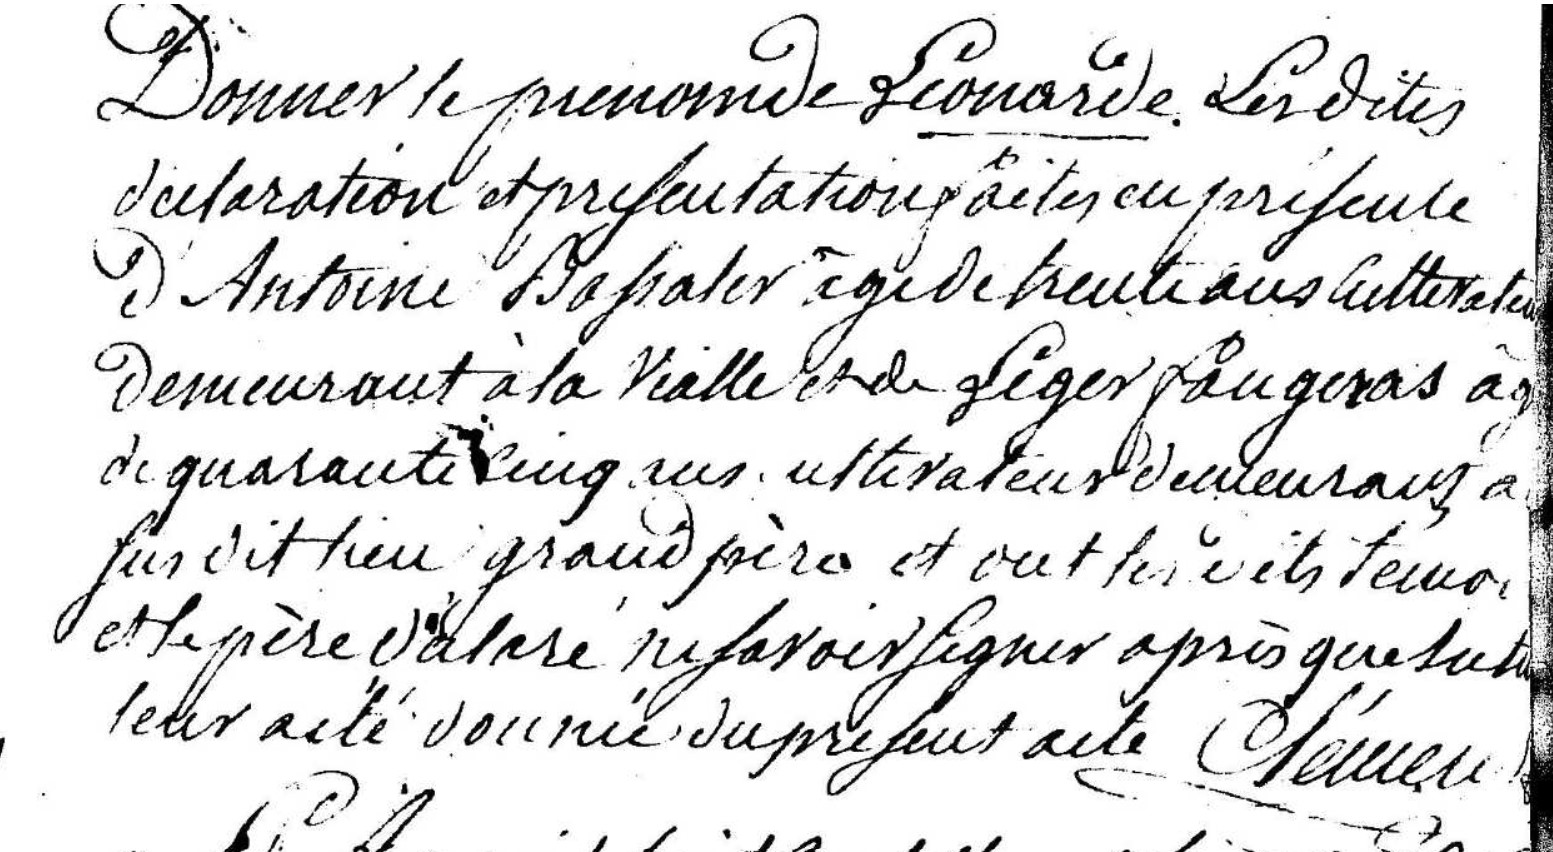 Donner le prenom de Léonarde. Les dites
déclaration et présentation faites en présente
d'Antoine Bassaler âge de trente ans Cultivateu
demeurant à la Vialle et de Léger faugeras âg
de quarante cinq ans cultivateur demeurant a
susdit lieu grand père et ont les dits temoi
et le père déclaré ne savoir signer après que lectu
leur a été donnée du présent acte Clémen